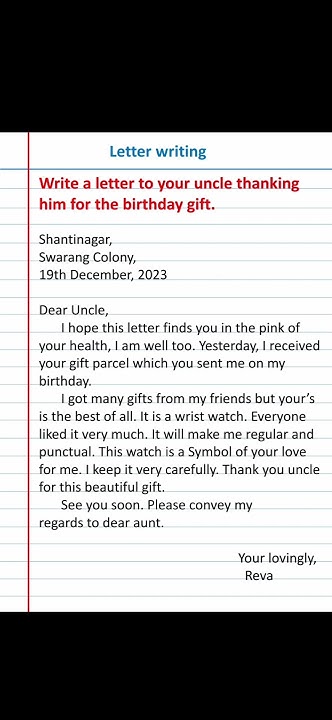 Letter writing
Write a letter to your uncle thanking
him for the birthday gift.
Shantinagar,
Swarang Colony,
19th December, 2023
Dear Uncle,
I hope this letter finds you in the pink of
your health, I am well too. Yesterday, I received
your gift parcel which you sent me on my
birthday.
I got many gifts from my friends but your's
is the best of all. It is a wrist watch. Everyone
liked it very much. It will make me regular and
punctual. This watch is a Symbol of your love
for me. I keep it very carefully. Thank you uncle
for this beautiful gift.
See you soon. Please convey my
regards to dear aunt.
Your lovingly,
Reva